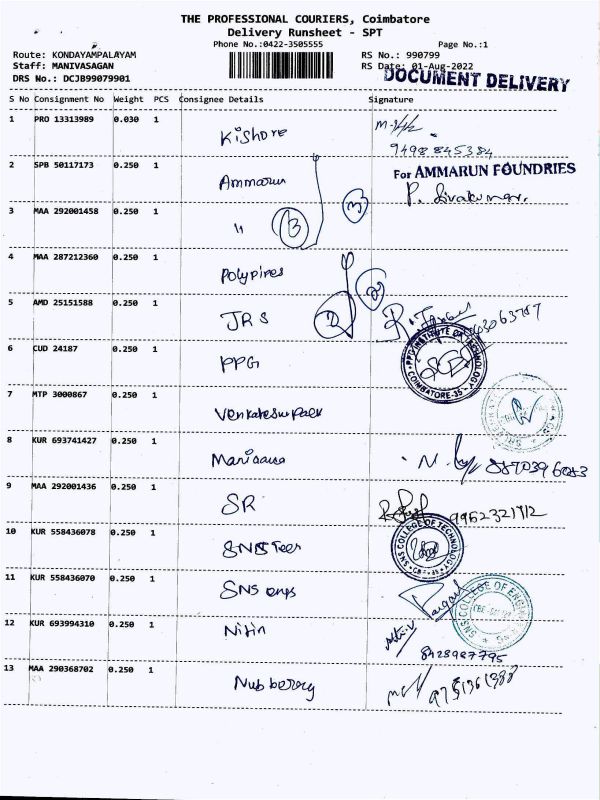 THE PROFESSIONAL COURIERS, Coimbatore
Delivery Runsheet - SPT
Phone No.:0422-3505555
Page No.:1
Route: KONDAYAMPALAYAM
RS No.: 990799
Staff: MANIVASAGAN
RS Date: 01-Aug-2022
DRS No.: DCJB99079901
DOCUMENT DELIVERY
S No Consignment No Weight PCS Consignee Details Signature
1 PRO 13313989 0.030 1 Kishore
9498845384
2 SPB 50117173 0.250 1 Ammarun
For AMMARUN FOUNDRIES
P. Sivakumar.
3 MAA 292001458 0.250 1 " 3 3
4 MAA 287212360 0.250 1 Polypipes
5 AMD 25151588 0.250 1 JRS 2 2
6 CUD 24187 0.250 1 PPG
PPG INSTITUTE OF TECHNOLOGY
COIMBATORE-35
7 MTP 3000867 0.250 1
8 KUR 693741427 0.250 1
8870396083
9 MAA 292001436 0.250 1 SR
9962321712
10 KUR 558436078 0.250 1 SNS Tech
SNS COLLEGE OF TECHNOLOGY
CBE-35
11 KUR 558436070 0.250 1 SNS
SNS COLLEGE OF
12 KUR 693994310 0.250 1 Nitin
8428987795
13 MAA 290368702 0.250 1
9751361388